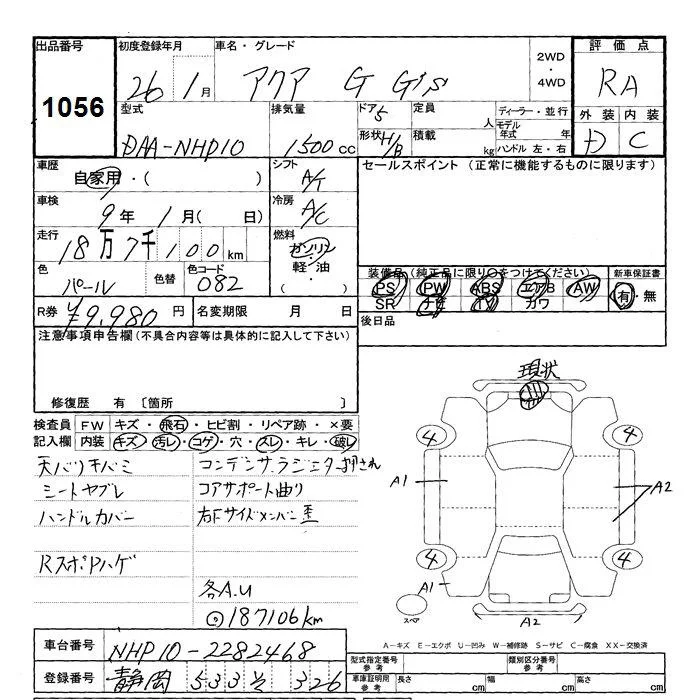 出品番号 初度登録年月 車名・グレード 2WD・4WD 評価点
1056 26 1月 アクア G G's RA
外装 内装
D C
型式 排気量 ドア 5 定員 人 ディーラー・並行
DAA-NHP10 1500cc 形状 H/B 積載 kg モデル年式 年
ハンドル 左・右
車歴 自家用・( ) シフト A/T セールスポイント (正常に機能するものに限ります)
車検 9年 1月( 日) 冷房 A/C
走行 18万7千100km 燃料 ガソリン・軽・油
色 パール 色替 色コード 082
装備品(純正品に限り○をつけてください) 新車保証書
PS PW ABS エアB AW 有・無
SR ナビ TV カワ
R券 ¥9,980円 名変期限 月 日 後日品
注意事項申告欄(不具合内容等は具体的に記入して下さい)
修復歴 有 〔箇所 〕
検査員 FW キズ・飛石・ヒビ割・リペア跡・×要
記入欄 内装 キズ・汚レ・コゲ・穴・スレ・キレ・破レ
天バリキバミ コンデンサ,ラジエター押され
シートヤブレ コアサポート曲り
ハンドルカバー 右Fサイドメンバー歪
RスポPハゲ
各A.U
187106km
現状
4 4
A1 A2
4 4
A1
スペア A2
A-キズ E-エクボ U-凹み W-補修跡 S-サビ C-腐食 XX-交換済
車台番号 NHP10-2282468 型式指定番号 参考 類別区分番号 参考
登録番号 静岡 533 そ 326 車庫証明用 参考 長さ cm 幅 cm 高さ cm